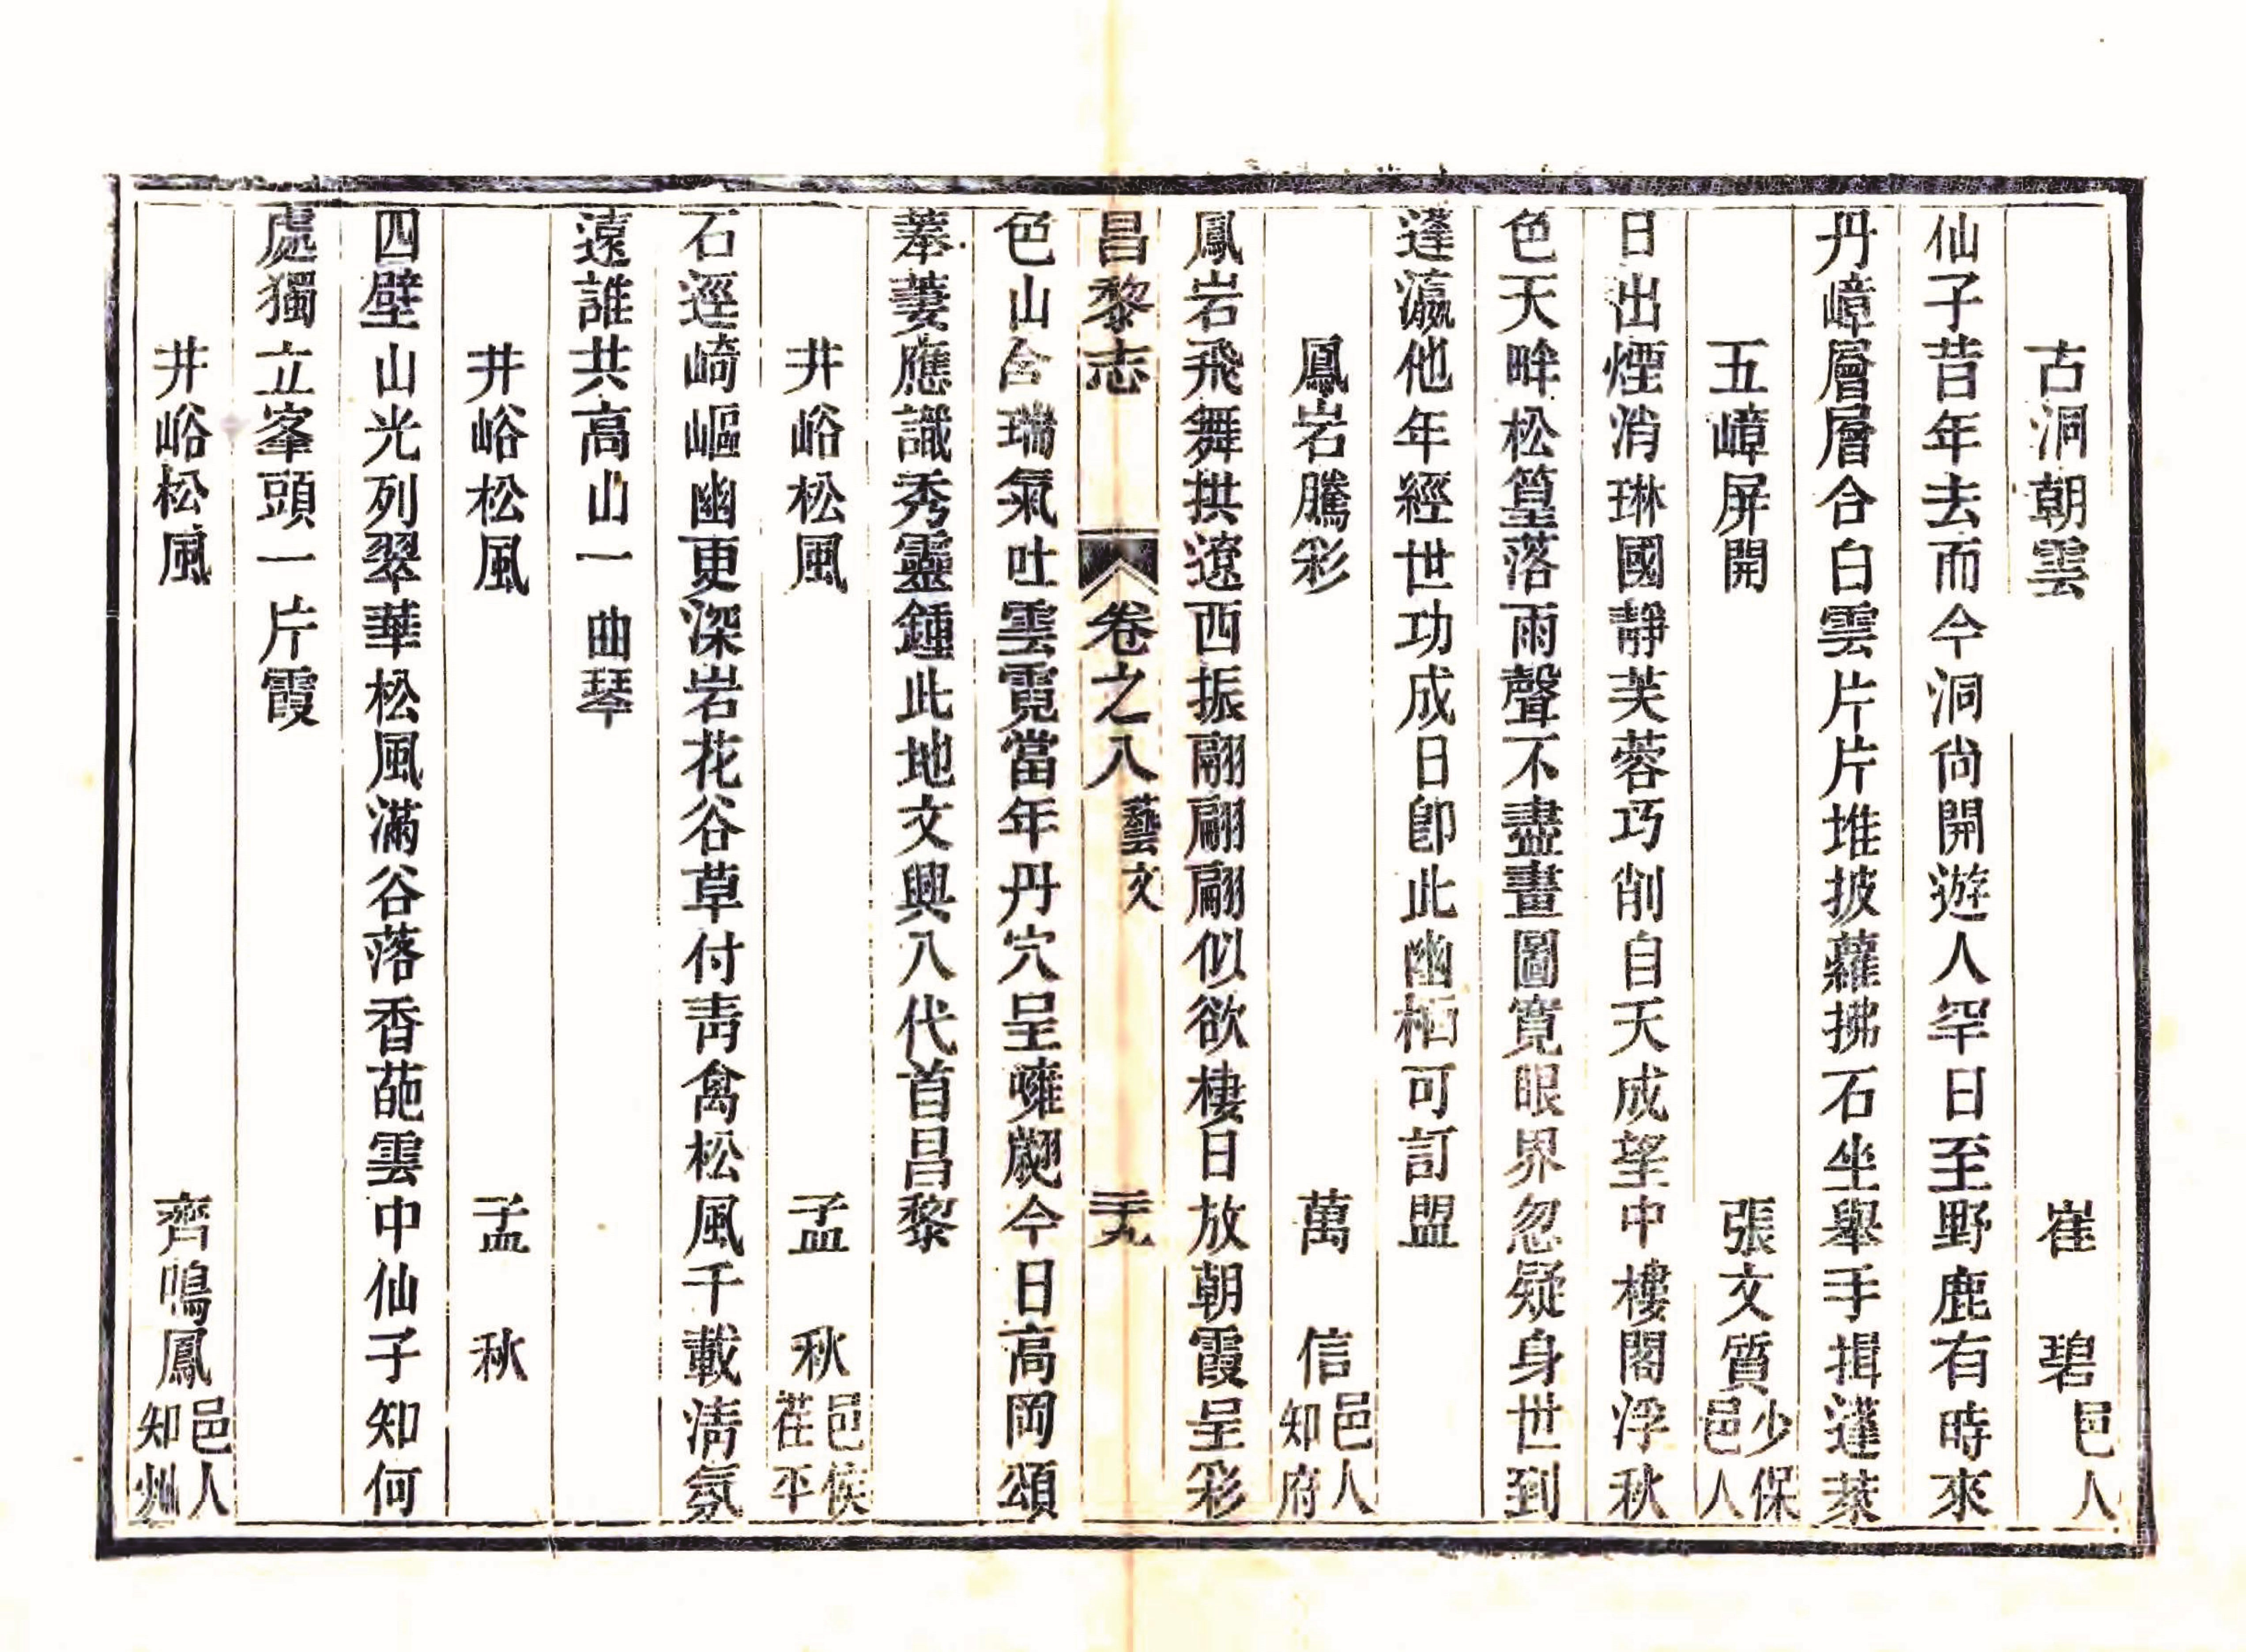 古洞朝雲　崔　碧邑人
仙子昔年去而今洞尚開遊人罕日至野鹿有時來
丹嶂層層合白雲片片堆披蘿拂石坐舉手揖蓬萊
五嶂屏開　張文質少保邑人
日出煙消琳國靜芙蓉巧削自天成望中樓閣浮秋
色天畔松篁落雨聲不盡畫圖寬眼界忽疑身世到
蓬瀛他年經世功成日卽此幽栖可訂盟
鳳岩騰彩　萬　信邑人知府
鳳岩飛舞拱遼西振翮翩翩似欲棲日放朝霞呈彩
昌黎志　卷之八藝文　三十九
色山含瑞氣吐雲霓當年丹穴呈噰翽今日高岡頌
菶萋應識秀靈鍾此地文興八代首昌黎
井峪松風　孟　秋邑侯茌平
石逕崎嶇幽更深岩花谷草付青禽松風千載淸氛
遠誰共高山一曲琴
井峪松風　孟　秋
四壁山光列翠華松風滿谷落香葩雲中仙子知何
處獨立峯頭一片霞
井峪松風　齊鳴鳳邑人知州